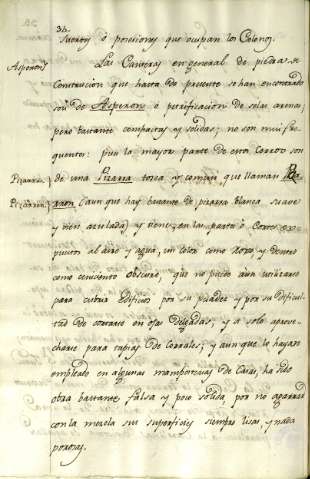 34.
suertes ò posesiones que ocupan los Colonos.
Asperon Las Canteras en general de piedra de
Construccion que hasta de presente se han encontrado
son de Asperon ò petrificacion de solas arenas,
pero bastante compactas y solidas; no son mui fre-
quentes: pues la mayor parte de estos Cerros son
Pizarra de una Pizarra tosca y comun que llaman
Pizarron (aunque hay bastante de pizarra blanca suave
y bien arculada) y tiene, en las partes ò Cortes ex-
puestos al aire y agua, un color como roxo, y dentro
como ceniciento obscuro, que no puede aun utilizarse
para cubrir edificios por su pesadez y por su dificul-
tad de cortarse en ojas delgadas; y a solo aprove-
charse para tapias de Corrales; y aunque la hayan
empleado en algunas mamposterias de Casas, ha sido
obra bastante falsa y poco solida, por no agarrar
con la mezcla sus superficies siempre lisas, y nada
porosas.